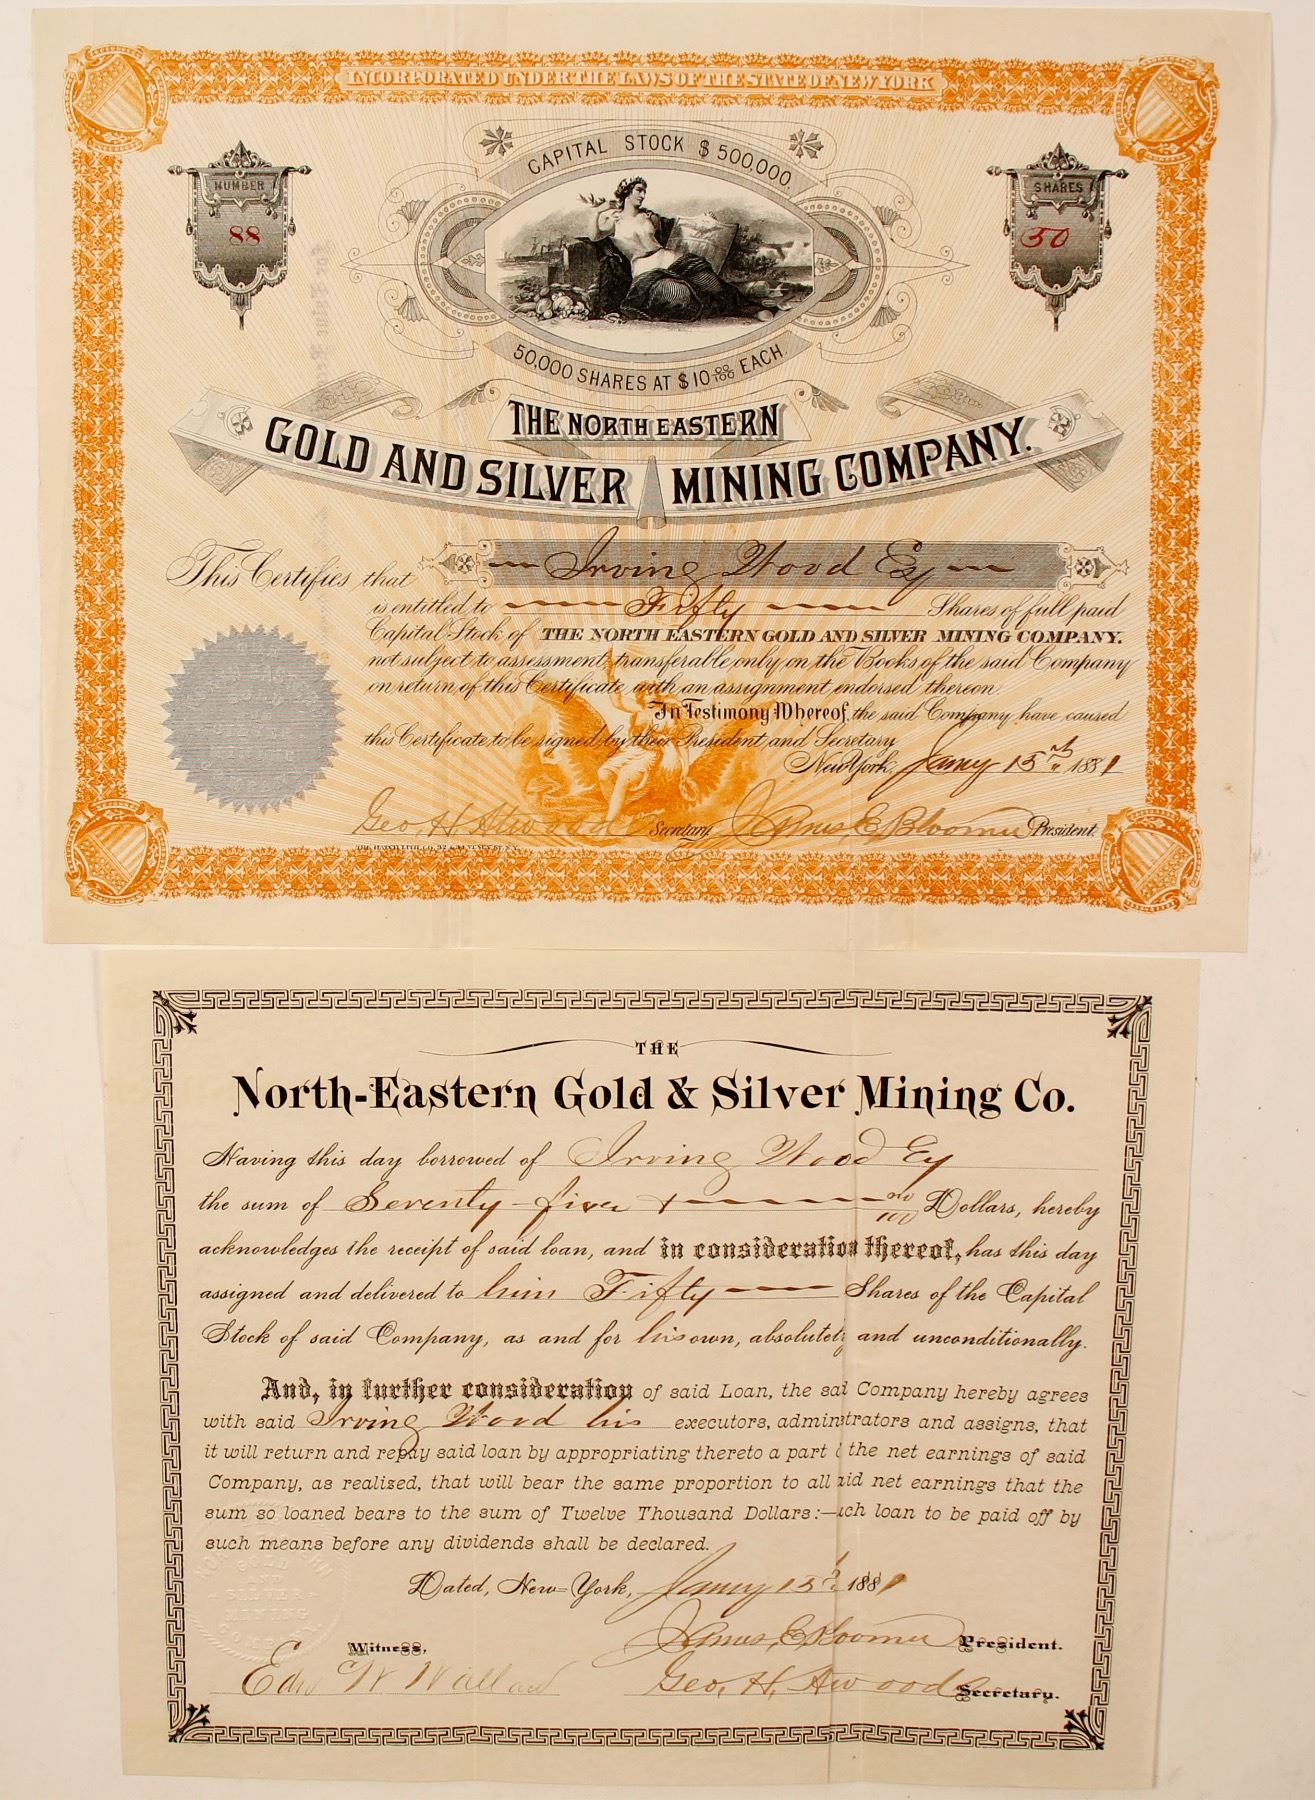 INCORPORATED UNDER THE LAWS OF THE STATE OF NEW YORK
CAPITAL STOCK $500,000.
NUMBER
88
SHARES
50
50,000 SHARES AT $10 00/100 EACH.
THE NORTH EASTERN
GOLD AND SILVER MINING COMPANY.
This Certifies that Irving Wood Esq
is entitled to Fifty Shares of full paid
Capital Stock of THE NORTH EASTERN GOLD AND SILVER MINING COMPANY.
not subject to assessment, transferable only on the Books of the said Company
on return of this Certificate with an assignment endorsed thereon.
In Testimony Whereof, the said Company have caused
this Certificate to be signed by their President and Secretary
New York, Jany 15th 1881
Geo. H. Atwood Secretary James E. Bloomer President.
THE
North-Eastern Gold & Silver Mining Co.
Having this day borrowed of Irving Wood Esq
the sum of Seventy-five + no/100 Dollars, hereby
acknowledges the receipt of said loan, and in consideration thereof, has this day
assigned and delivered to him Fifty Shares of the Capital
Stock of said Company, as and for his own, absolutely and unconditionally.
And, in further consideration of said Loan, the sai Company hereby agrees
with said Irving Wood his executors, administrators and assigns, that
it will return and repay said loan by appropriating thereto a part the net earnings of said
Company, as realised, that will bear the same proportion to all aid net earnings that the
sum so loaned bears to the sum of Twelve Thousand Dollars:—uch loan to be paid off by
such means before any dividends shall be declared.
Dated, New-York, Jany 15 1881
NORTH EASTERN
GOLD
AND
SILVER
MINING
COMPANY
James E. Bloomer President.
Witness,
Edw W Geo. H. Atwood Secretary.